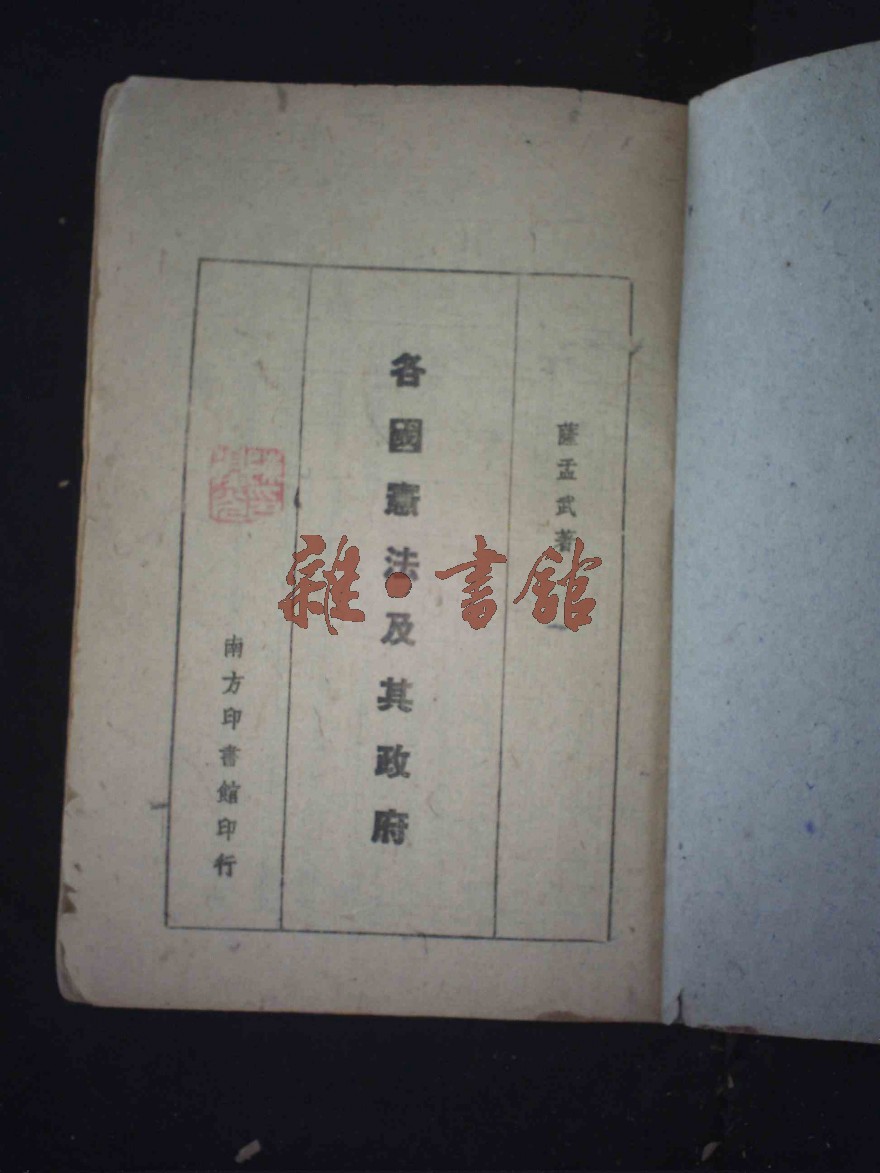 薩孟武著
各國憲法及其政府
南方印書館印行
雜·書館